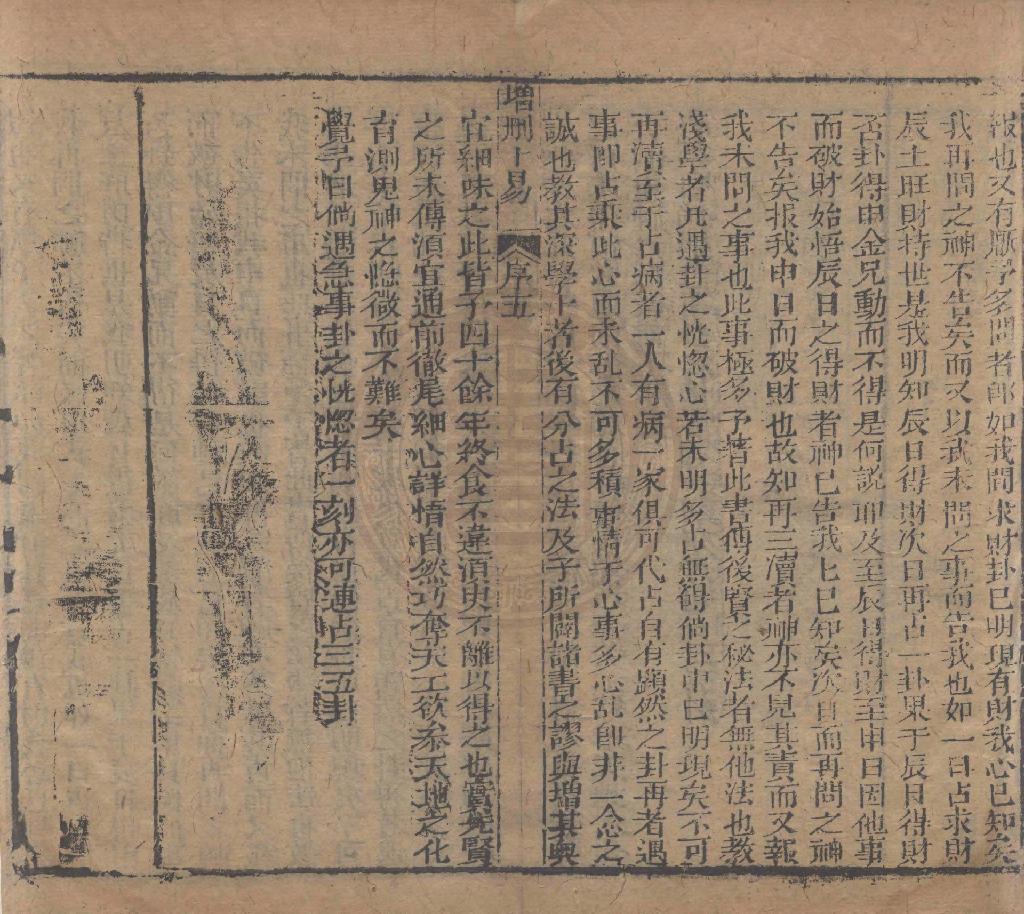 報也又有厭予多問者卽如我問求財卦已明現有財我心已知矣
我再問之神不告矣而又以我未問之事而告我也如一日占求財
辰土旺財持世是我明知辰日得財次日再占一卦果于辰日得財
否卦得申金兄動而不得是何說耶及至辰日得財至申日因他事
而破財始悟辰日之得財者神已告我我已知矣次日而再問之神
不告矣报我申日而破財也故知再三瀆者神亦不見其責而又報
我未問之事也此事極多予著此書傳後賢之秘法者無他法也教
淺學者凡遇卦之恍惚心若未明多占無碍倘卦中已明現矣不可
再瀆至于占病者一人有病一家俱可代占自有顯然之卦再者遇
事卽占乘此心而未乱不可多積事情于心事多心乱卽非一念之
誠也教其深學卜者後有分占之法及予所闢諸書之謬與增其奥
增删卜易 序五
宜細味之此皆予四十餘年終食不違湏臾不離以得之也實先賢
之所未傳湏宜通前徹尾細心詳悟自然巧奪天工欲叅天地之化
育測鬼神之隐微而不難矣
覺子曰倘遇急事卦之恍惚者一刻亦可連占三五卦